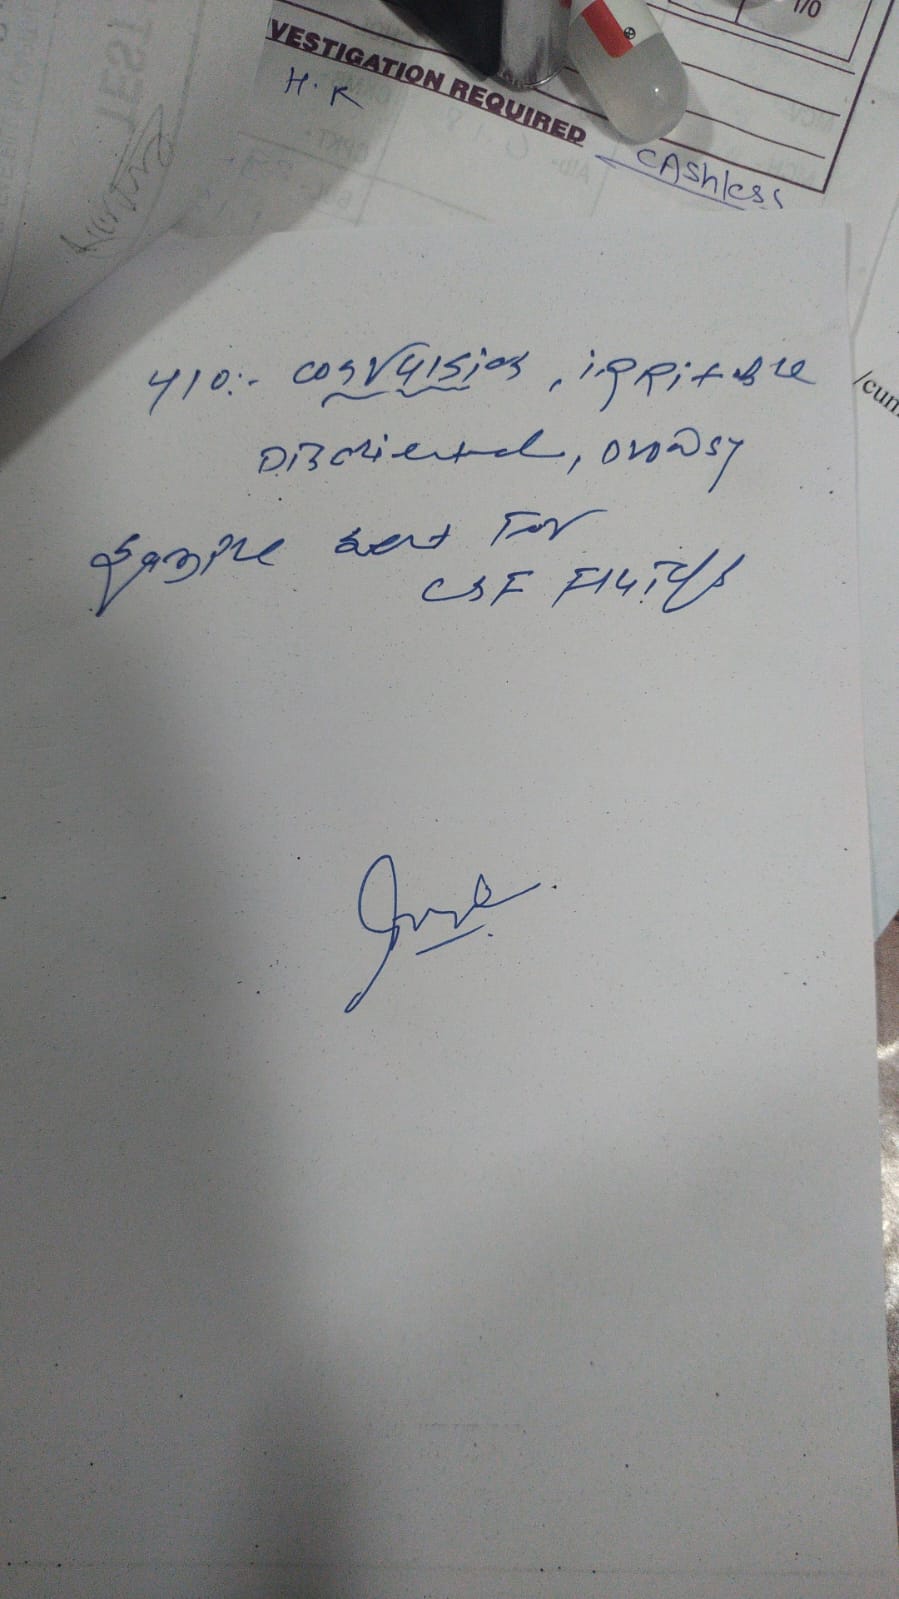 I/O
VESTIGATION REQUIRED
H.K
CAshless
TEST
/cum
H/O:- convulsion, irritable
Disoriented, Drowsy
Sample sent For
CSF Fluid